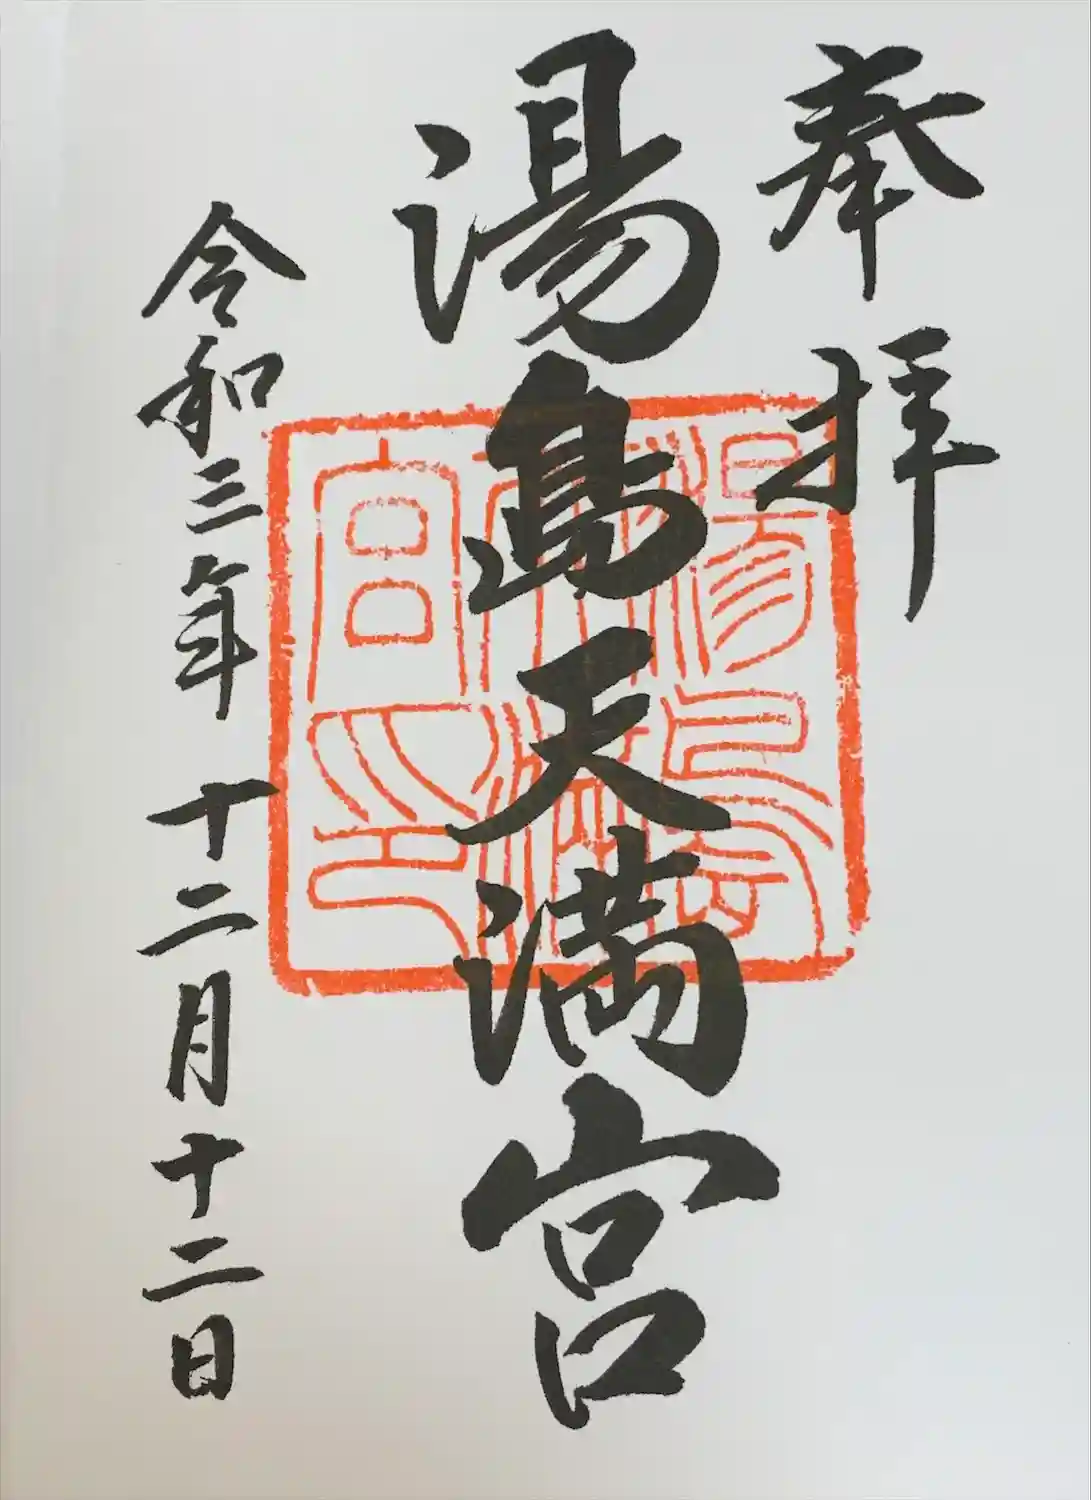 奉拝
湯島天満宮
湯島天満宮印
令和三年十二月十二日